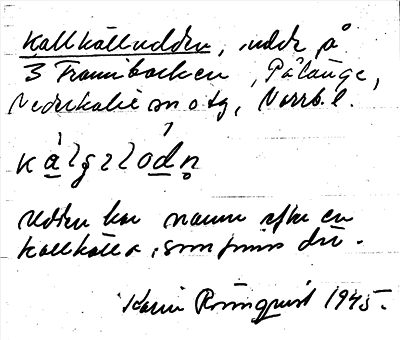 Kallkälludden, udde på
S Frambacken, Pålänge,
Nederkalix sn o tg, Norrb. l.
Udden har namn efter en
kallkälla, som finns där.
Karin Rönnquist 1945.